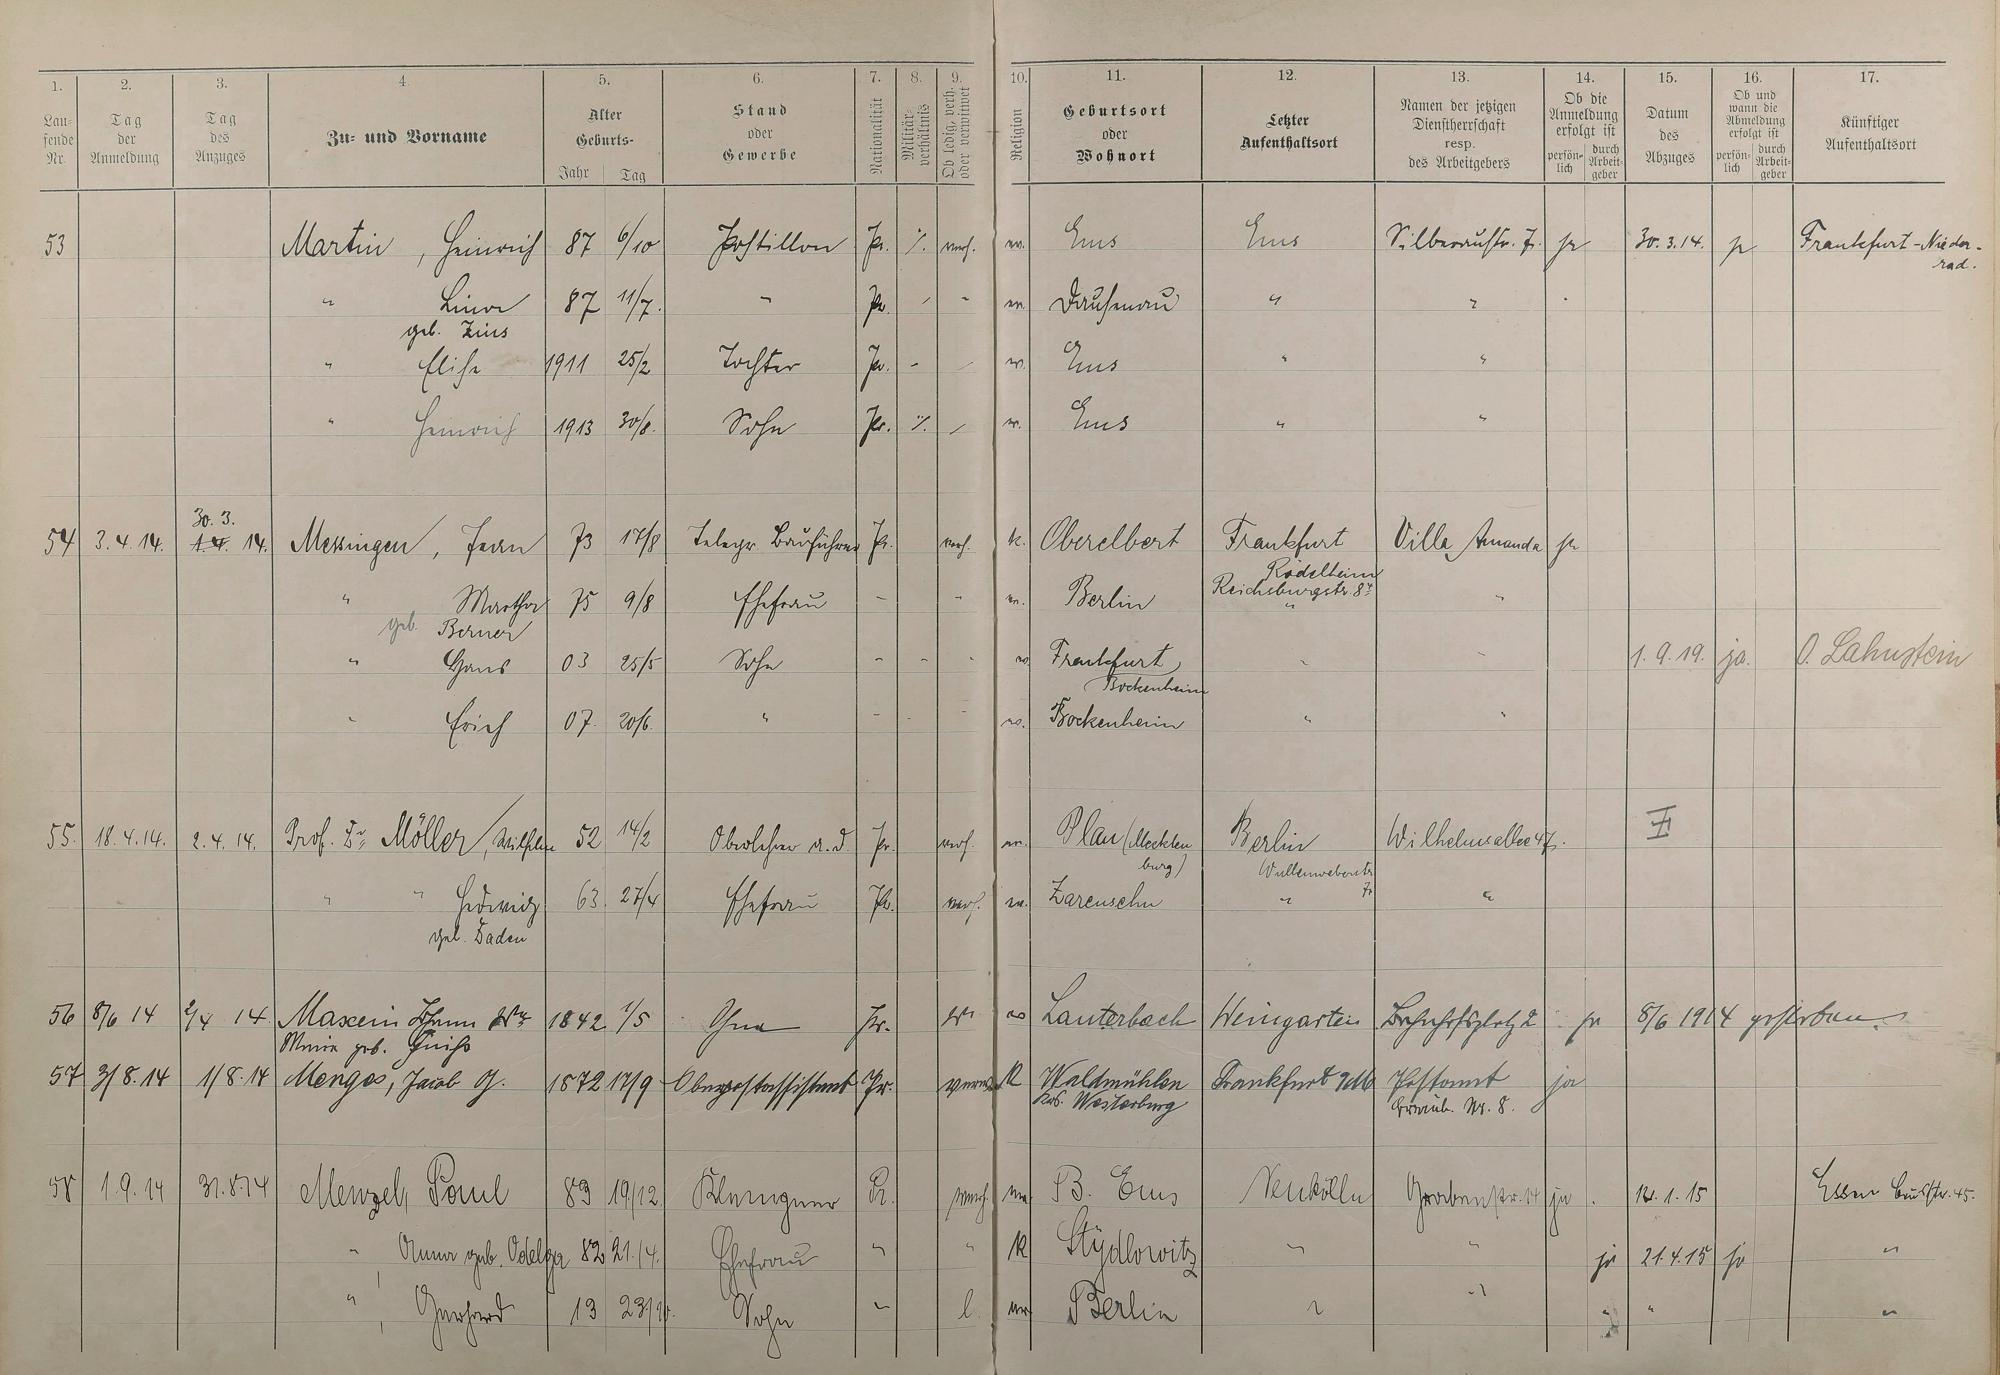 1. 2. 3. 4. 5. 6. 7. 8. 9. 10. 11. 12. 13. 14. 15. 16. 17.
Lau-
fende
Nr.
Tag
der
Anmeldung
Tag
des
Anzuges
Zu- und Vorname
Alter
Geburts-
Jahr Tag
Stand
oder
Gewerbe
Nationalität
Militär-
verhältnis
Ob ledig, verh.
oder verwitwet
Religion
Geburtsort
oder
Wohnort
Letzter
Aufenthaltsort
Namen der jetzigen
Dienstherrschaft
resp.
des Arbeitgebers
Ob die
Anmeldung
erfolgt ist
persön-
lich
durch
Arbeit-
geber
Datum
des
Abzuges
Ob und
wann die
Abmeldung
erfolgt ist
persön-
lich
durch
Arbeit-
geber
Künftiger
Aufenthaltsort
53 Martin, Heinrich 87 6/10 Postillon Pr. ·/. verh. ev. Ems Ems Silberaustr. 7. ja 30.3.14. ja Frankfurt-Nieder-
rad.
" Lina 87 11/7. " Pr. ev. Dausenau " "
geb. Zins
" Elise 1911 25/2 Tochter Pr. - ev. Ems " "
" Heinrich 1913 30/8. Sohn Pr. ·/. ev. Ems " "
30.3.
54 3.4.14. 1.4. 14. Messingen, Jean 73 17/8 Telegr. Bauführer Pr. verh. k. Oberelbert Frankfurt Villa Amanda ja
Rödelheim
" Martha 75 9/8 Ehefrau - " ev. Berlin Reichsburgstr. 8 "
geb. Berner
" Hans 03 25/5 Sohn - - - ev. Frankfurt " " 1.9.19. ja. O. Lahnstein
Bockenheim
" Erich 07. 20/6. " - - - ev. Bockenheim " "
55. 18.4.14. 2.4.14. Prof. Dr. Möller, Wilhelm 52 14/2 Oberlehrer a. d. Pr. verh. ev. Plau (Mecklen Berlin Wilhelmsallee 47.
burg) Wullenweberstr.
7.
" " Hedwig 63. 27/4 Ehefrau Pr. verh. ev. " "
geb. Baden
56 8/6 14 2/4 14 Maxein Johann Ww 1842 1/5 Ohne Pr. Ww ev Lauterbach Weingarten Bahnhofsplatz 2 ja 8/6 1914 gestorben.
Maria geb.
57 3/8.14 1/8.14 Menges, Jacob G. 1872 17/9 Oberpostassistent Pr. k Waldmühlen Frankfurt a/M Postamt ja
Krs. Westerburg Nr. 8.
58 1.9.14 31.8.14 Menzel, Paul 83 19/12. Klempner Pr. verh. ev. B. Ems Neukölln Grabenstr. 14 ja 1.15 Essen 45.
" , Anna geb. Odelga 82 21./4. Ehefrau " " k Stÿdlowitz " " ja 21.4.15 ja "
" , Gerhard 13 23/10. Sohn " l. ev. Berlin " " " " "